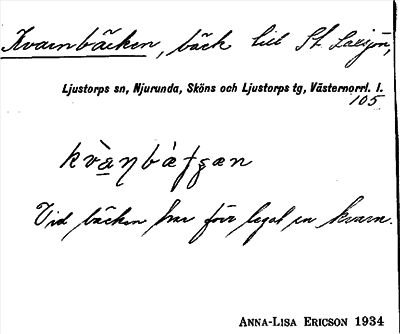 Kvarnbäcken, bäck till St. Laxsjön,
Ljustorps sn, Njurunda, Sköns och Ljustorps tg, Västernorrl. l.
105
Vid bäcken har förr legat en kvarn.
ANNA-LISA ERICSON 1934